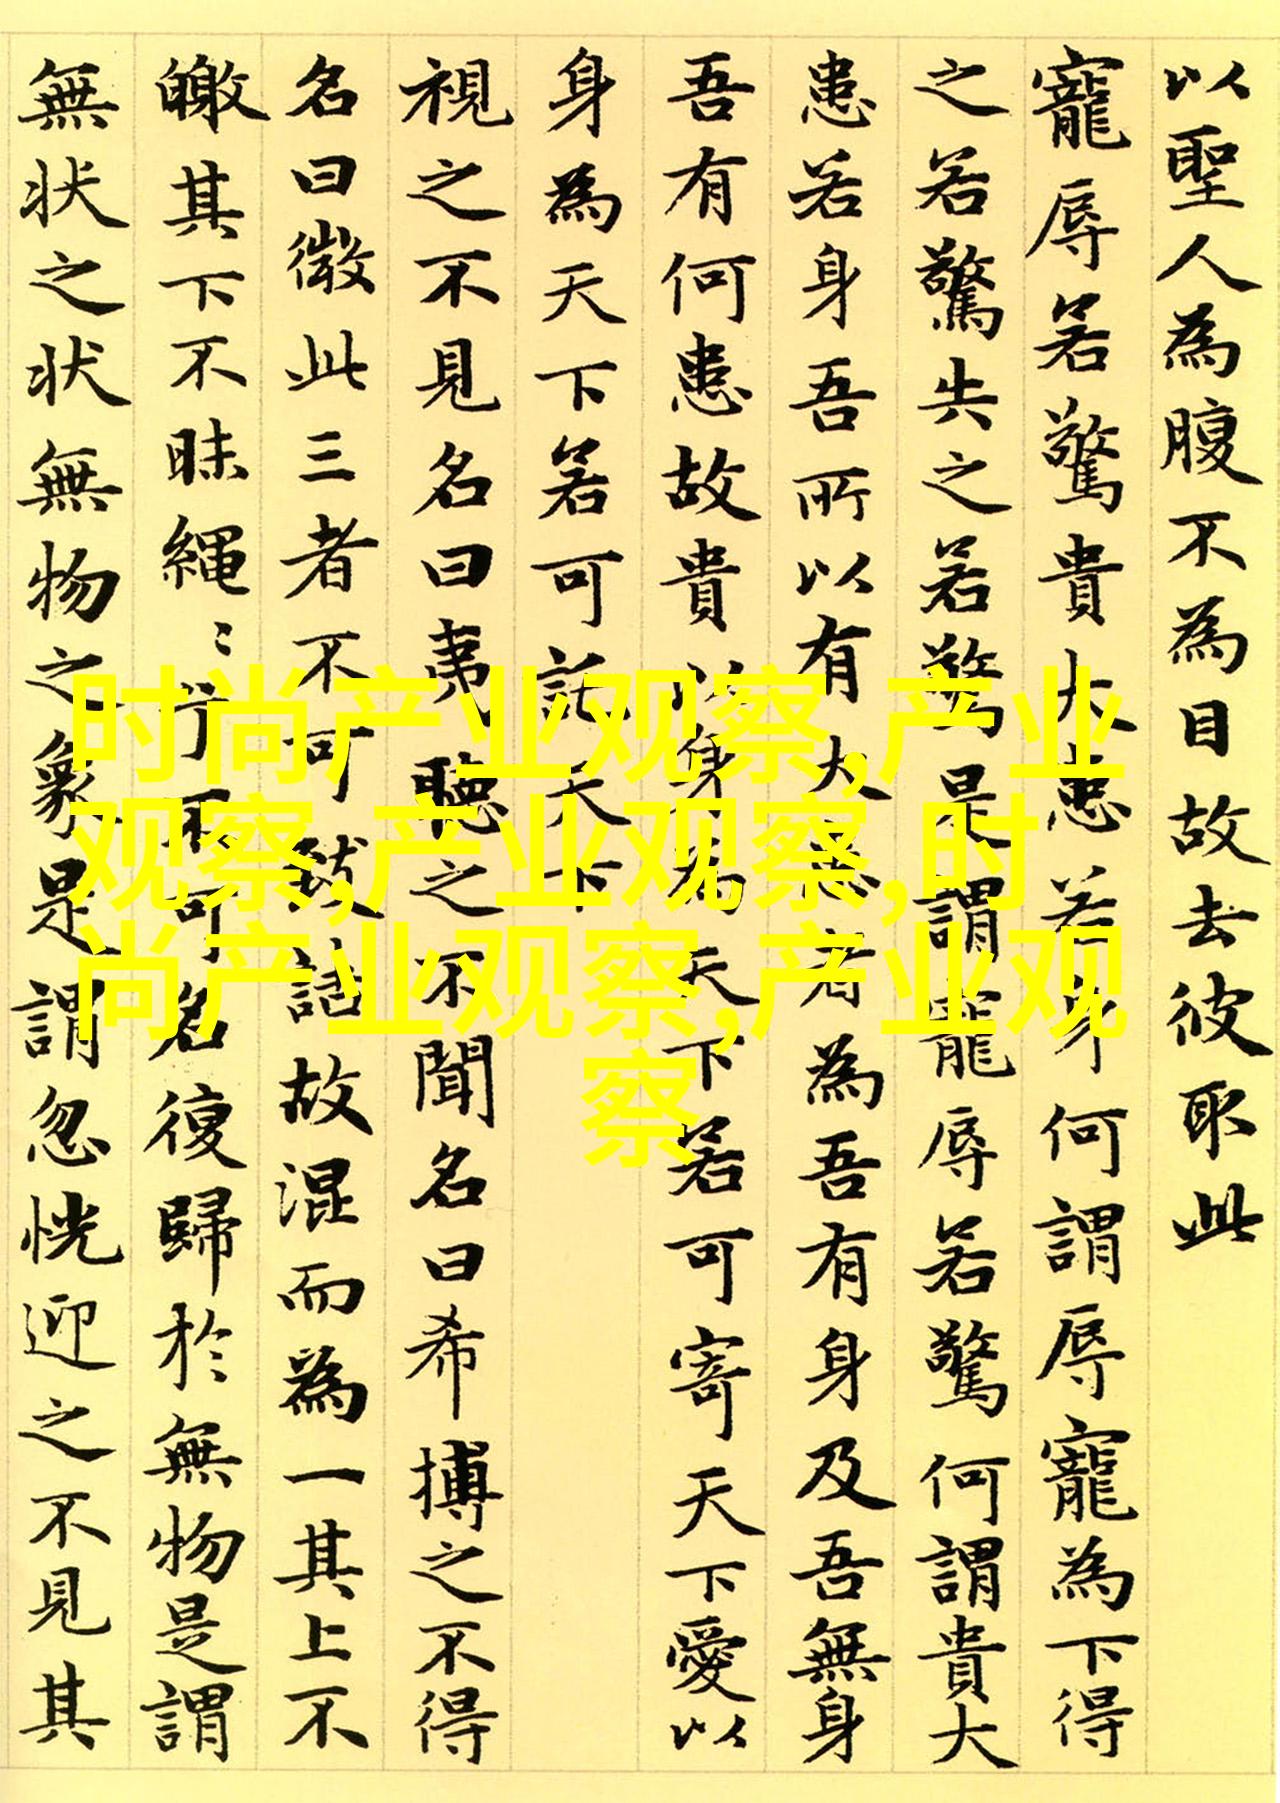 以聖人為腹不為目故去彼取此
寵辱若驚貴大患若身何謂辱寵為下得
之若驚失之若驚是謂寵辱若驚何謂貴大
患若身吾所以有大患者為吾有身及吾無身
吾有何患故貴以身為天下若可寄天下愛以
身為天下若可託天下
視之不見名曰夷聽之不聞名曰希搏之不得
名曰微此三者不可致詰故混而為一其上不
皦其下不昧繩〻行不可名復歸於無物是謂
無状之状無物之象是謂忽恍迎之不見其
时尚产业观察,产业
观察,产业观察,时
尚产业观察,产业观
察